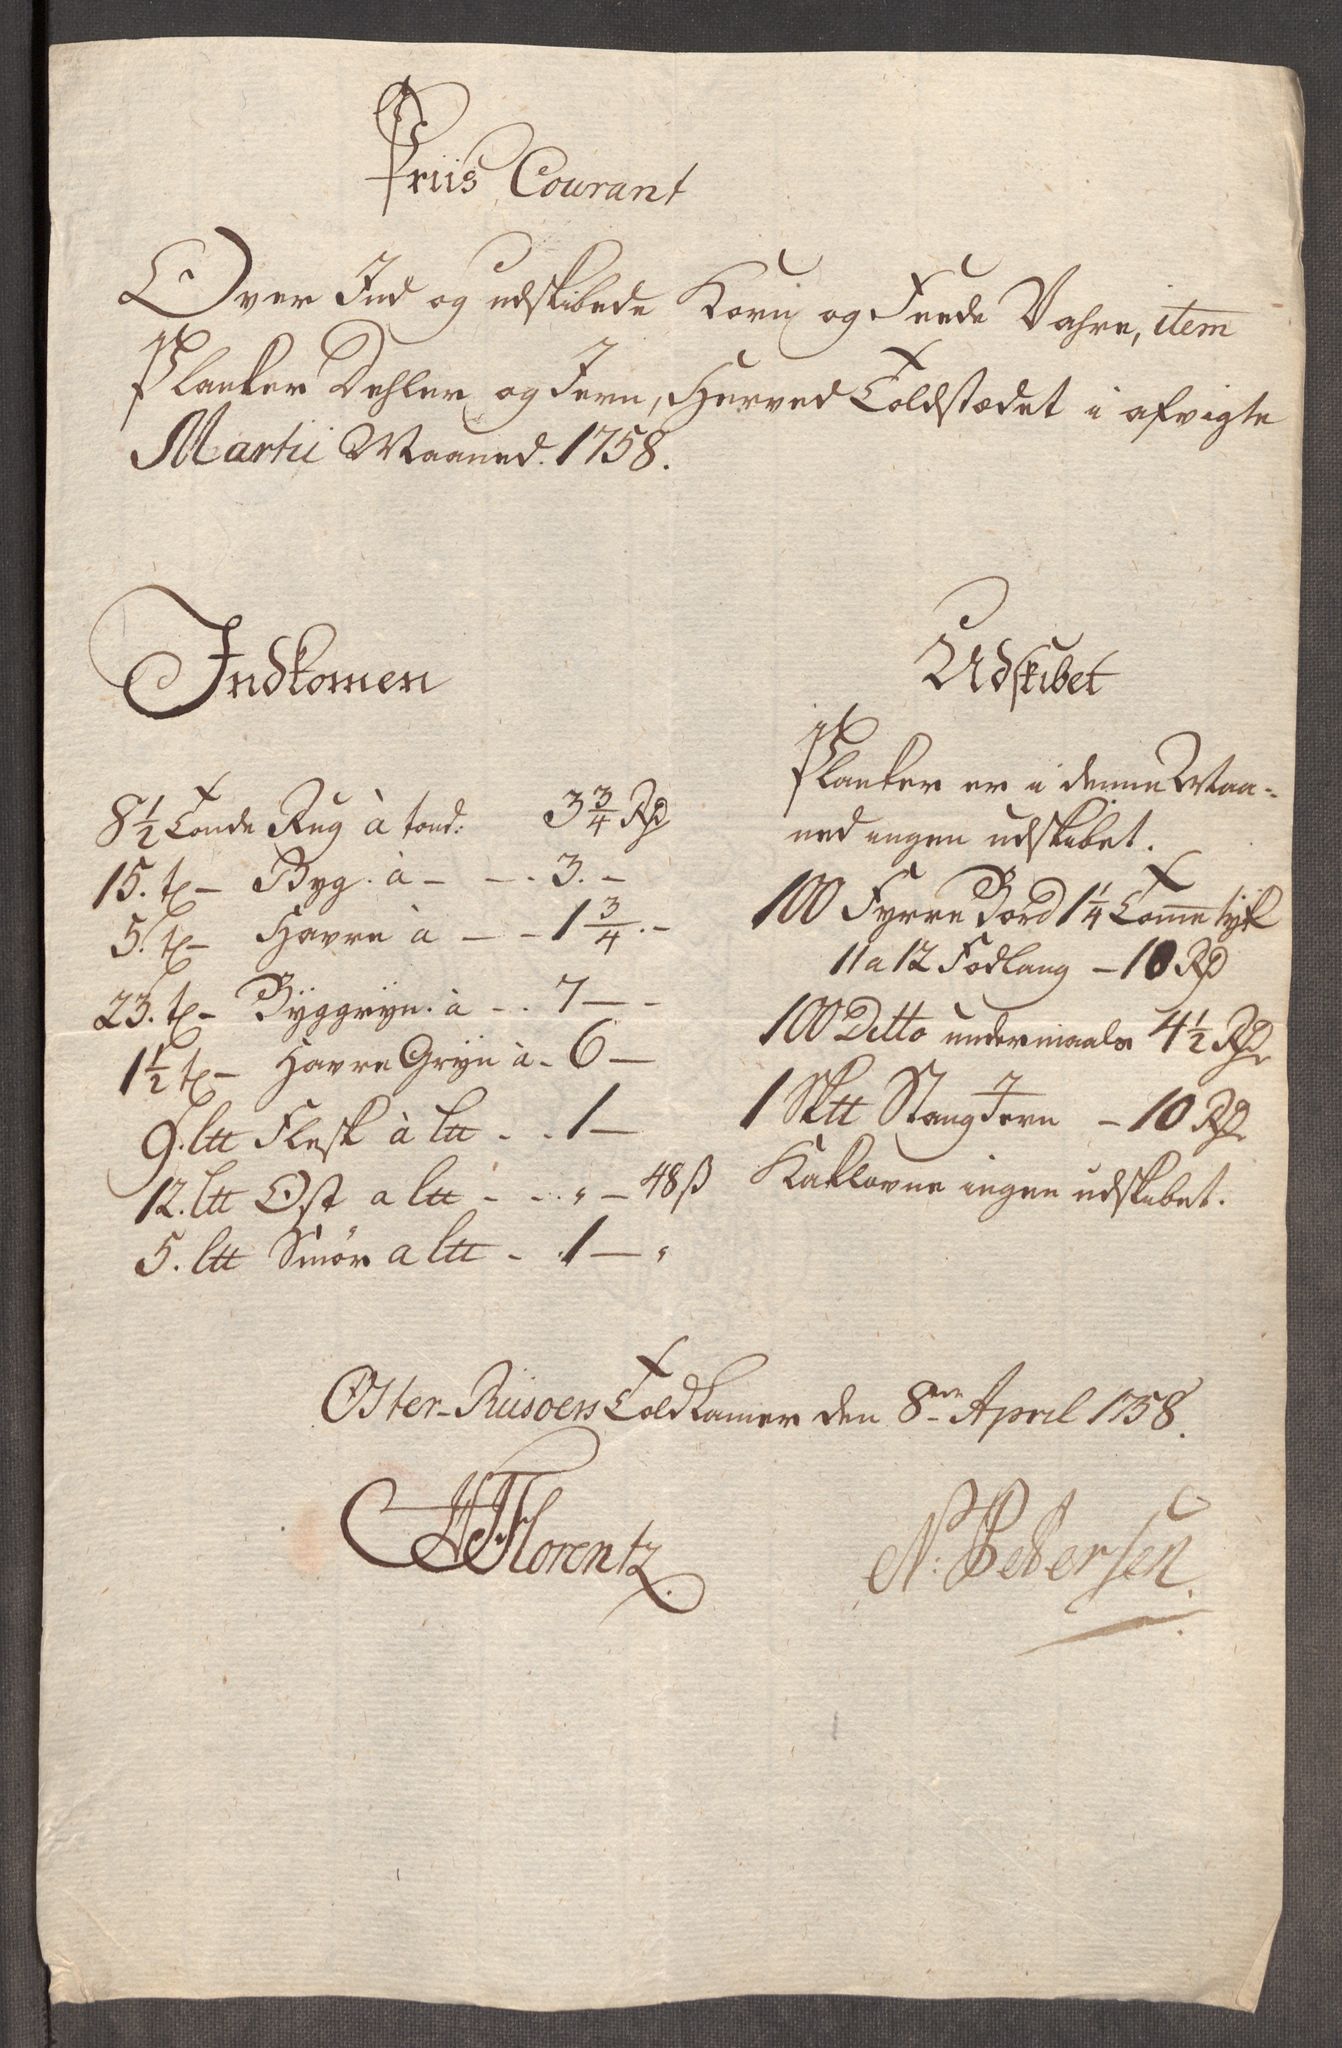 Priis Courant
Over Ind og udskibede Korn og Feede Vahre, item
Planker Dehler og Jern, Herved Toldstædet i afvigte
Martii Maaned. 1758.
Indkomen
8½ Tonde Rug à tond: 3¾ Rd
15. t– Byg. à – – . 3. –
5. t– Havre à – – 1¾. –
23. t– Byggryn. à – . 7 – –
1½ t– Havre Gryn à – 6 –
9. ltt Flesk à ltt – . . 1 –
12. ltt Ost a ltt – – . . " – 48 ß
5. ltt Smør a ltt – . 1 – "
Udskibet
Planker er i denne Maa-
ned ingen udskibet.
100 Fyrre Bord 1¼ Tomme tyk
11 a 12 Fod lang – 10 Rd
100 Ditto undermaals 4½ Rd
1 Sktt Stang Jern – 10 Rd
Kaklovne ingen udskibet.
Øster-Riisøers Toldkamer den 8de April 1758.
HFlorentz.
N: Pedersen.